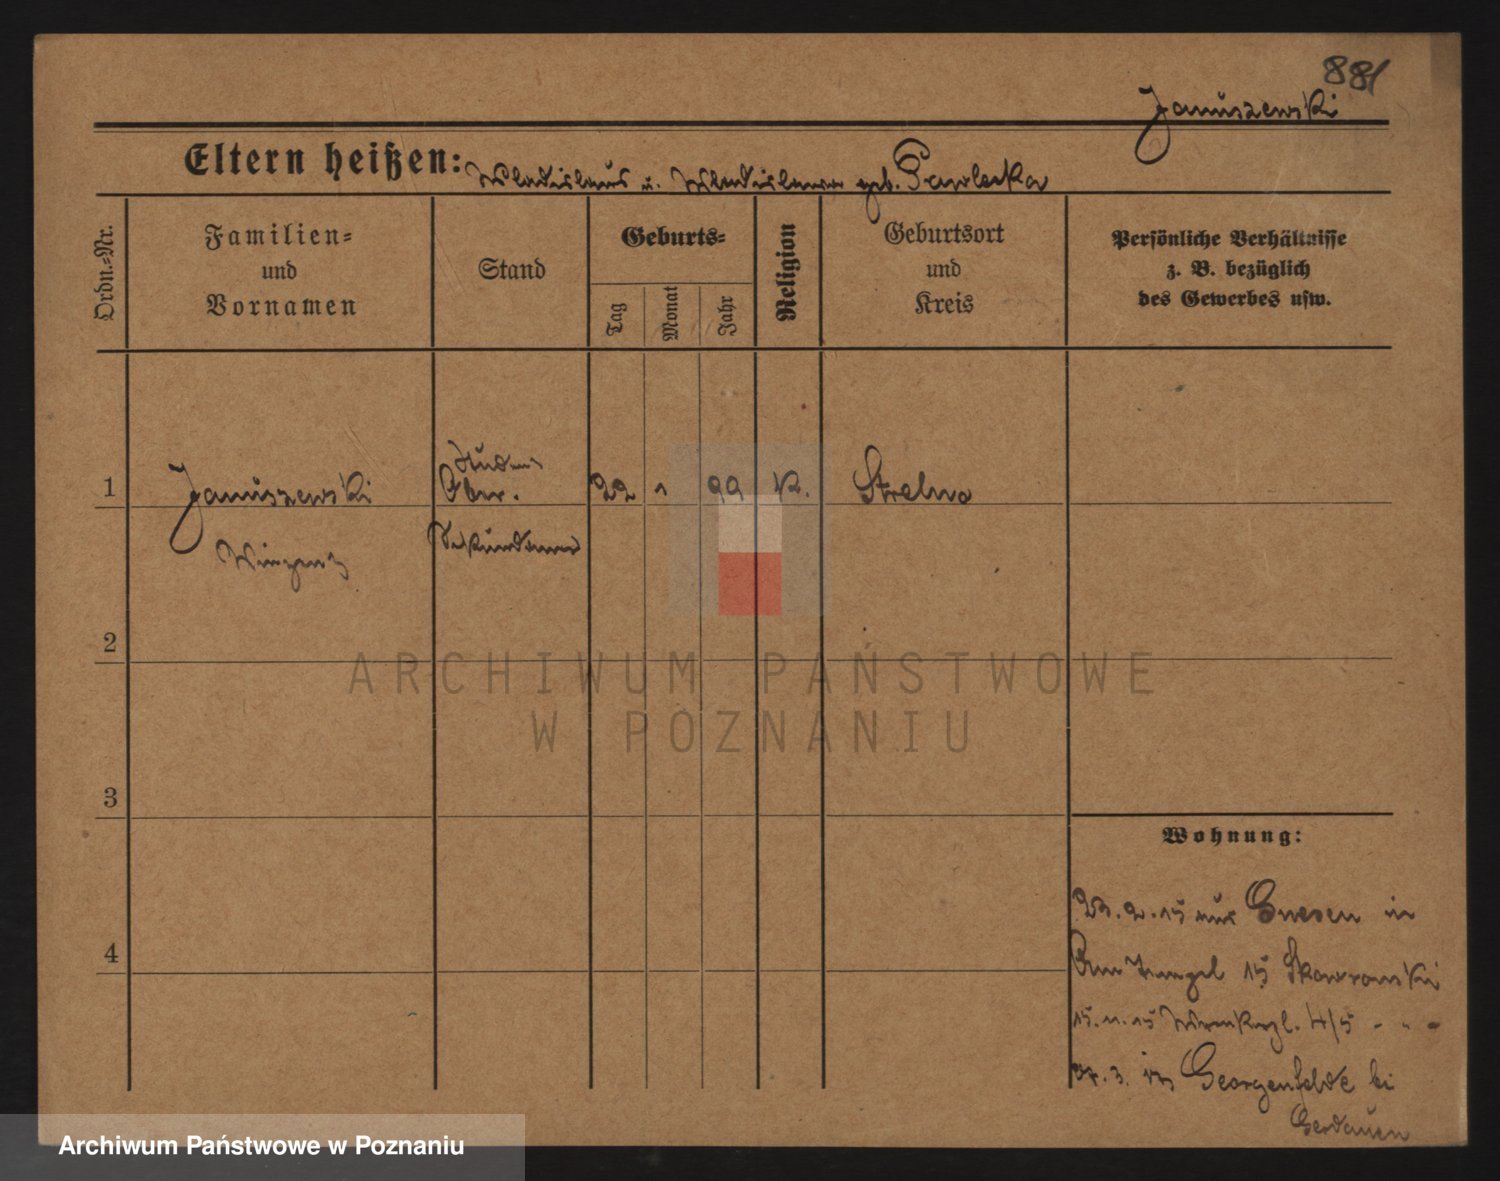 881
Januszewski
Eltern heißen: Wladislaus u. Wladislawa geb. Pawlecka
Ordn.-Nr.
Familien-
und
Vornamen
Stand
Geburts-
Tag
Monat
Jahr
Religion
Geburtsort
und
Kreis
Persönliche Verhältnisse
z. B. bezüglich
des Gewerbes usw.
1
Januszewski
Ober.
22
1
99
K.
Strelno
Sekundaner
2
ARCHIWUM PAŃSTWOWE
W POZNANIU
3
4
Wohnung:
23.2.15 aus Gnesen in
15 Skowronski
15.11.15 4/5 - " -
in Georgenfelde bei
Gerdauen
Archiwum Państwowe w Poznaniu